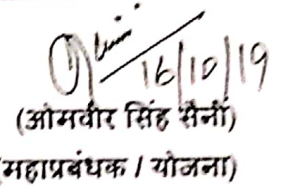 16/10/19
(ओमवीर सिंह सैनी)
(महाप्रबंधक / योजना)